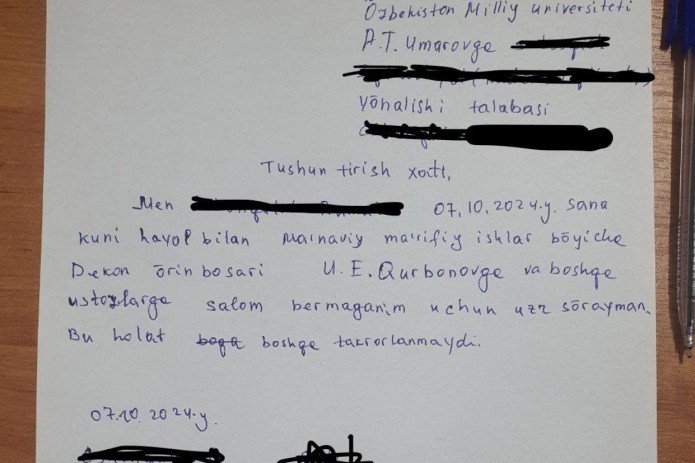 Ōzbekiston Milliy universiteti
A.T. Umarovge
yōnalishi talabasi
Tushun tirish xati,
Men 07.10.2024.y. sana
kuni hayol bilan ma'naviy ma'rifiy ishlar bōyiche
Dekon ōrin bosari U.E.Qurbonovge va boshqe
ustozlarge salom bermaganim uchun uzr sōrayman.
Bu holat boshqe takrorlanmaydi.
07.10.2024.y.